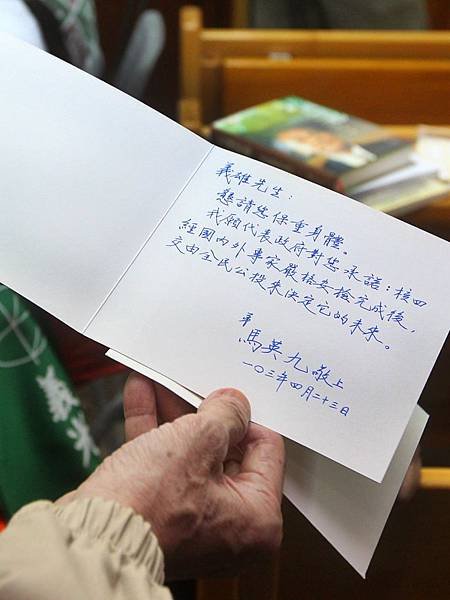 義雄先生：
懇請您保重身體。
我願代表政府對您承諾：核四
經國內外專家嚴格安檢完成後，
交由全民公投來決定它的未來。
弟
馬英九敬上
一○三年四月二十三日
義光